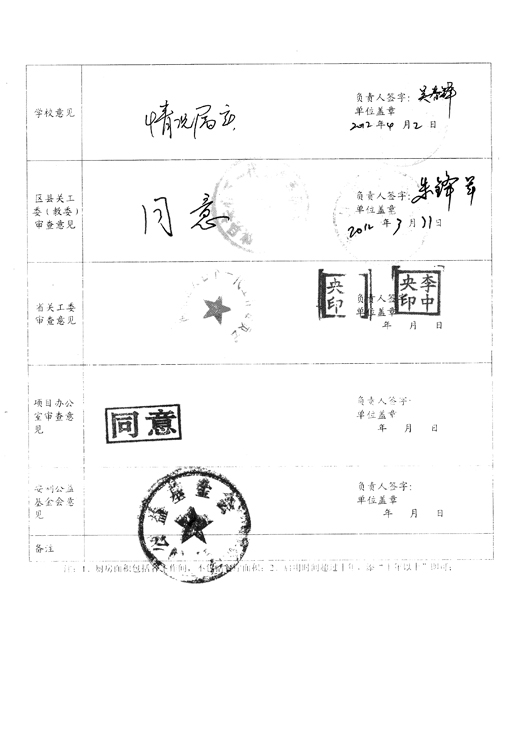 学校意见
情况属实
负责人签字:
单位盖章
2012年4月2日
区县关工
委(教委)
审查意见
同意
负责人签字:
单位盖章
2012年3月31日
省关工委
审查意见
央印
李中央印
负责人签字:
单位盖章
年 月 日
项目办公
室审查意
见
同意
负责人签字:
单位盖章
年 月 日
安利公益
基金会意
见
公益基金会
负责人签字:
单位盖章
年 月 日
备注
注:1、厨房面积包括 工作间,不 面积;2、启用时间超过十年,添“十年以上”即可;